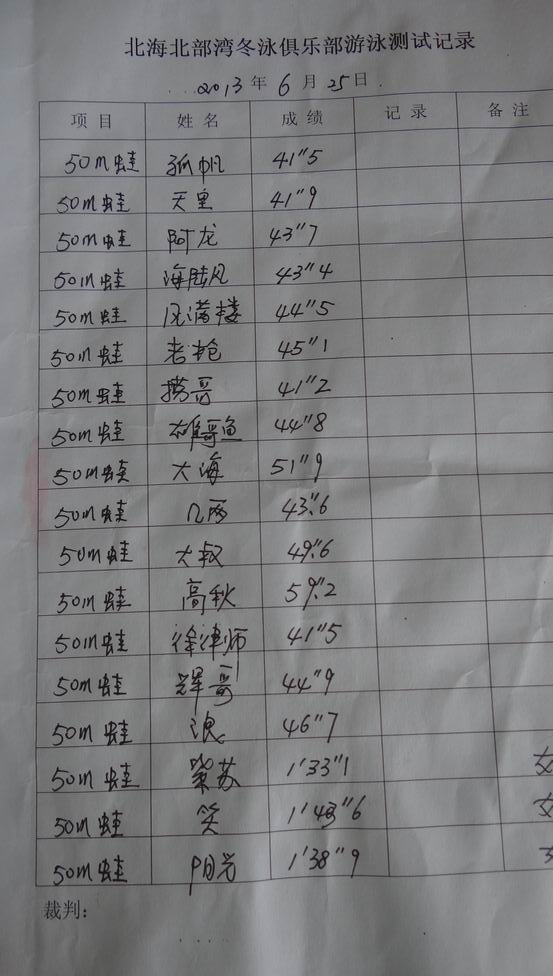 北海北部湾冬泳俱乐部游泳测试记录
2013年6月25日
项目 姓名 成绩 记录 备注
50m蛙 孤帆 41"5
50m蛙 天皇 41"9
50m蛙 阿龙 43"7
50m蛙 海陆风 43"4
50m蛙 风满楼 44"5
50m蛙 老枪 45"1
50m蛙 捞哥 41"2
50m蛙 雄哥鱼 44"8
50m蛙 大海 51"9
50m蛙 几两 43"6
50m蛙 大叔 49"6
50m蛙 高秋 59"2
50m蛙 徐律师 41"5
50m蛙 辉哥 44"9
50m蛙 浪 46"7
50m蛙 紫苏 1'33"1 女
50m蛙 笑 1'43"6 女
50m蛙 阳光 1'38"9
裁判: